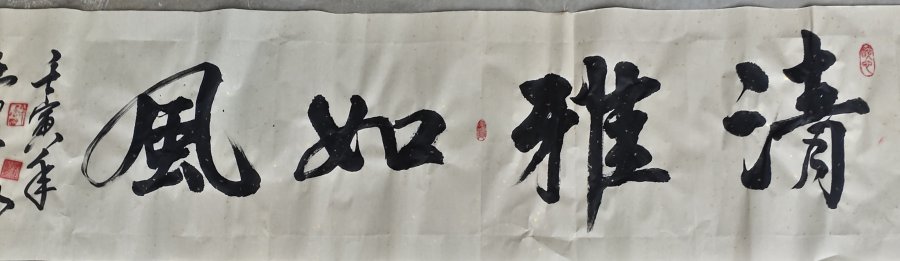 清雅如風
壬寅年